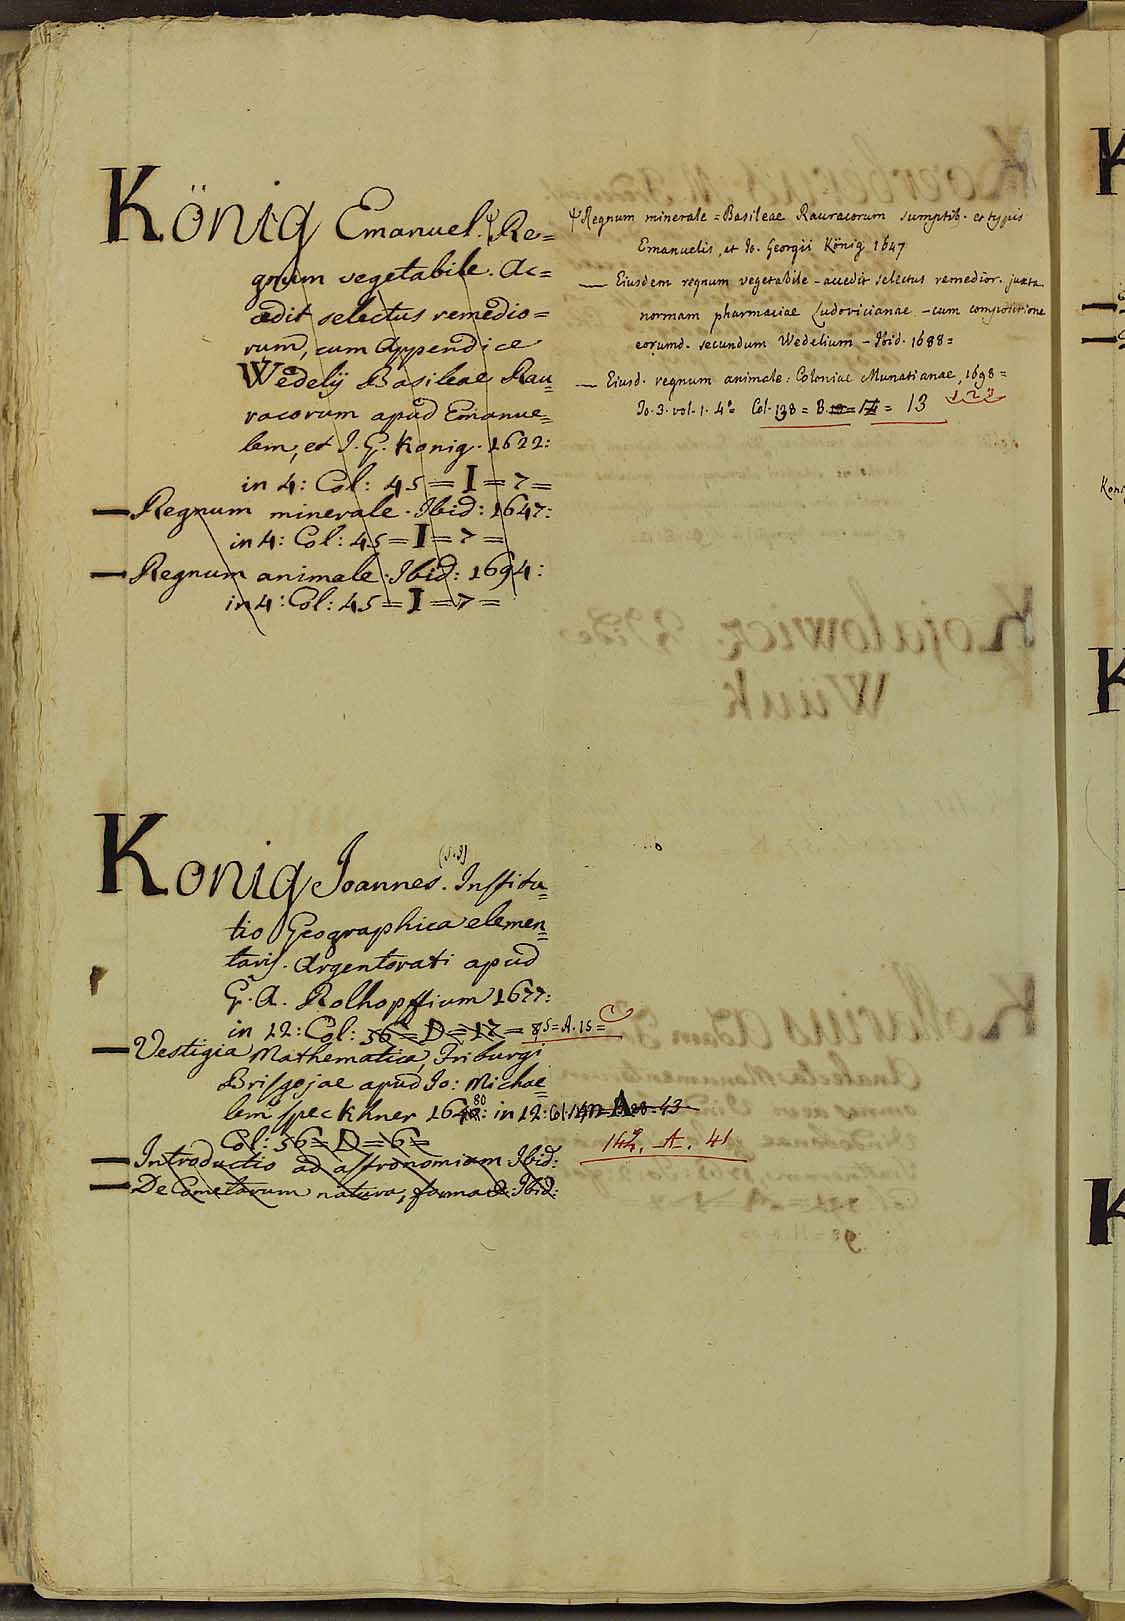 König Emanuel. Ψ Re=
gnum vegetabile. Ac=
cedit selectus remedio=
rum, cum Appendice
Wedelij Basileae Rau
racorum apud Emanue=
lem, et J. G. Konig. 1622:
in 4: Col: 45 = I = 7 =
— Regnum minerale. Ibid: 1647:
in 4: Col: 45 = I = 7 =
— Regnum animale. Ibid: 1694:
in 4: Col: 45 = I = 7 =
Ψ Regnum minerale = Basileae Rauracorum sumptib. et typis
Emanuelis, et Jo. Georgii König 1647
— Eiusdem regnum vegetabile – accedit selectus remedior. juxta
normam pharmaciae Ludovicianae – cum compositione
eorumd. secundum Wedelium – Ibid. 1688 =
— Eiusd. regnum animale: Coloniae Munatianae, 1698 =
To. 3. vol. 1. 4º = Col. 138 = B. = 13
Konig Joannes. (S.J) Institu=
tio Geographica elemen=
taris. Argentorati apud
G. A. Rolhopffium 1677:
in 12: Col: 56 = D = 12 = 85 = A. 15 =
— Vestigia Mathematica, Friburgi
Brisgojae apud Jo: Michae
lem speckhner 1648: 80 in 12: Col. 43
142. A. 41
Col: 56 = D = 6 =
— Introductio ad astronomiam Ibid:
— De Cometarum natura, forma &: Ibid:
Kojalowicz Vide
Wiiuk
Kollarius Adam
Analecta Monumentorum